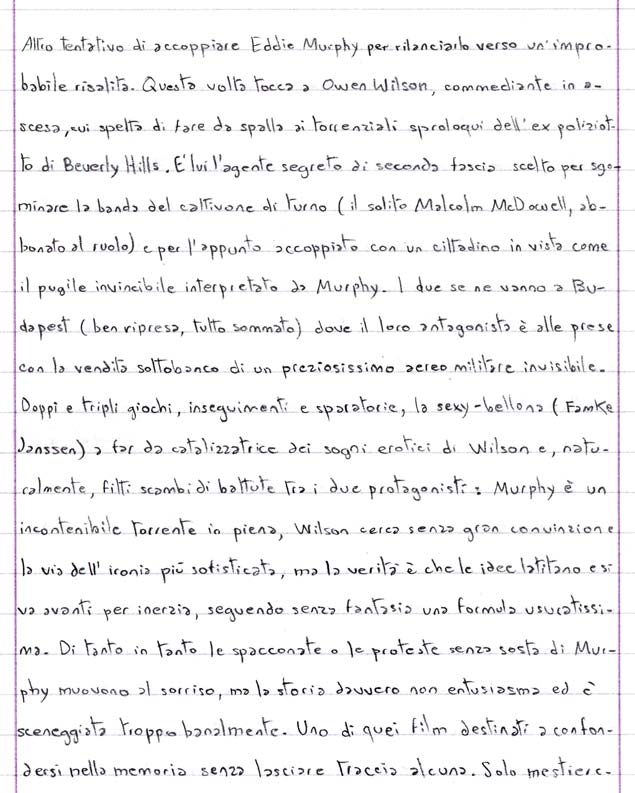 Altro tentativo di accoppiare Eddie Murphy per rilanciarlo verso un'impro-
babile risalita. Questa volta tocca a Owen Wilson, commediante in a-
scesa, cui spetta di fare da spalla ai torrenziali sproloqui dell'ex poliziot-
to di Beverly Hills. E' lui l'agente segreto di seconda fascia scelto per sgo-
minare la banda del cattivone di turno (il solito Malcolm McDowell, ab-
bonato al ruolo) e per l'appunto accoppiato con un cittadino in vista come
il pugile invincibile interpretato da Murphy. I due se ne vanno a Bu-
dapest (ben ripresa, tutto sommato) dove il loro antagonista è alle prese
con la vendita sottobanco di un preziosissimo aereo militare invisibile.
Doppi e tripli giochi, inseguimenti e sparatorie, la sexy-bellona (Famke
Janssen) a far da catalizzatrice dei sogni erotici di Wilson e, natu-
ralmente, fitti scambi di battute tra i due protagonisti: Murphy è un
incontenibile torrente in piena, Wilson cerca senza gran convinzione
la via dell'ironia più sofisticata, ma la verità è che le idee latitano e si
va avanti per inerzia, seguendo senza fantasia una formula usuratissi-
ma. Di tanto in tanto le spacconate o le proteste senza sosta di Mur-
phy muovono al sorriso, ma la storia davvero non entusiasma ed è
sceneggiata troppo banalmente. Uno di quei film destinati a confon-
dersi nella memoria senza lasciare traccia alcuna. Solo mestiere.